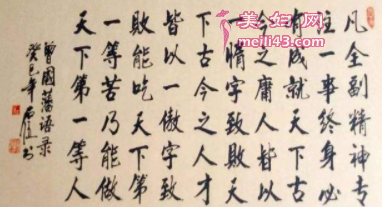 凡全副精神专
注一事终身必
有成就天下古
今之庸人皆以
一惰字致败天
下古今之人才
皆以一傲字致
败能吃天下第
一等苦乃能做
天下第一等人
曾國藩语录
癸巳年
书
美妇网
meili43.com